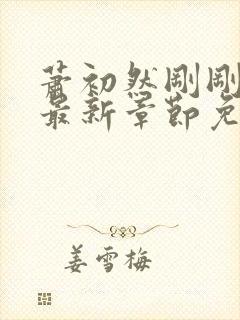 萧初然刚刚
最新章节免
姜雪梅